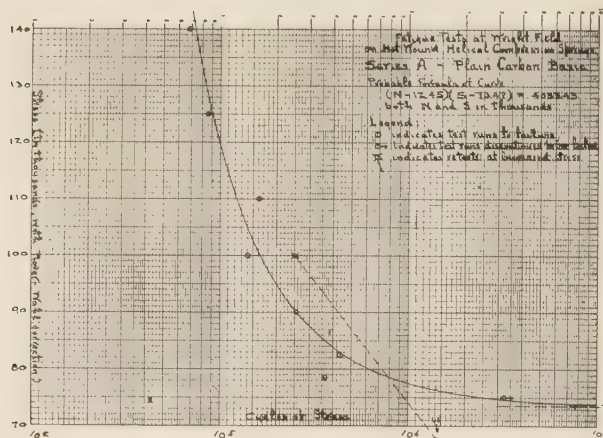 Fatigue Tests at Wright Field
on Hot Wound Helical Compression Springs
Series A - Plain Carbon Basic
Probable Formula of Curve
both N and S in thousands
Legend:
indicates test runs to failure
indicates test runs discontinued
indicates retests at increased stress
Stress (in thousands, with Modern Wahl correction)
140
130
120
110
100
90
80
70
Cycles of Stress
10⁵
10⁶